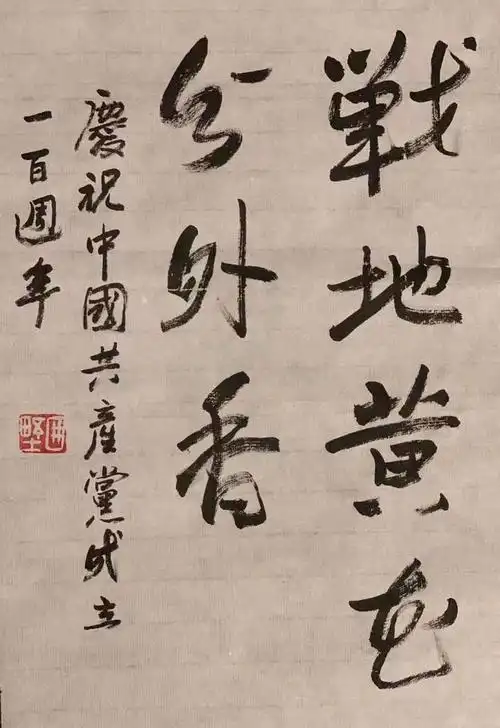 戰地黄花
分外香
慶祝中國共產黨成立
一百週年